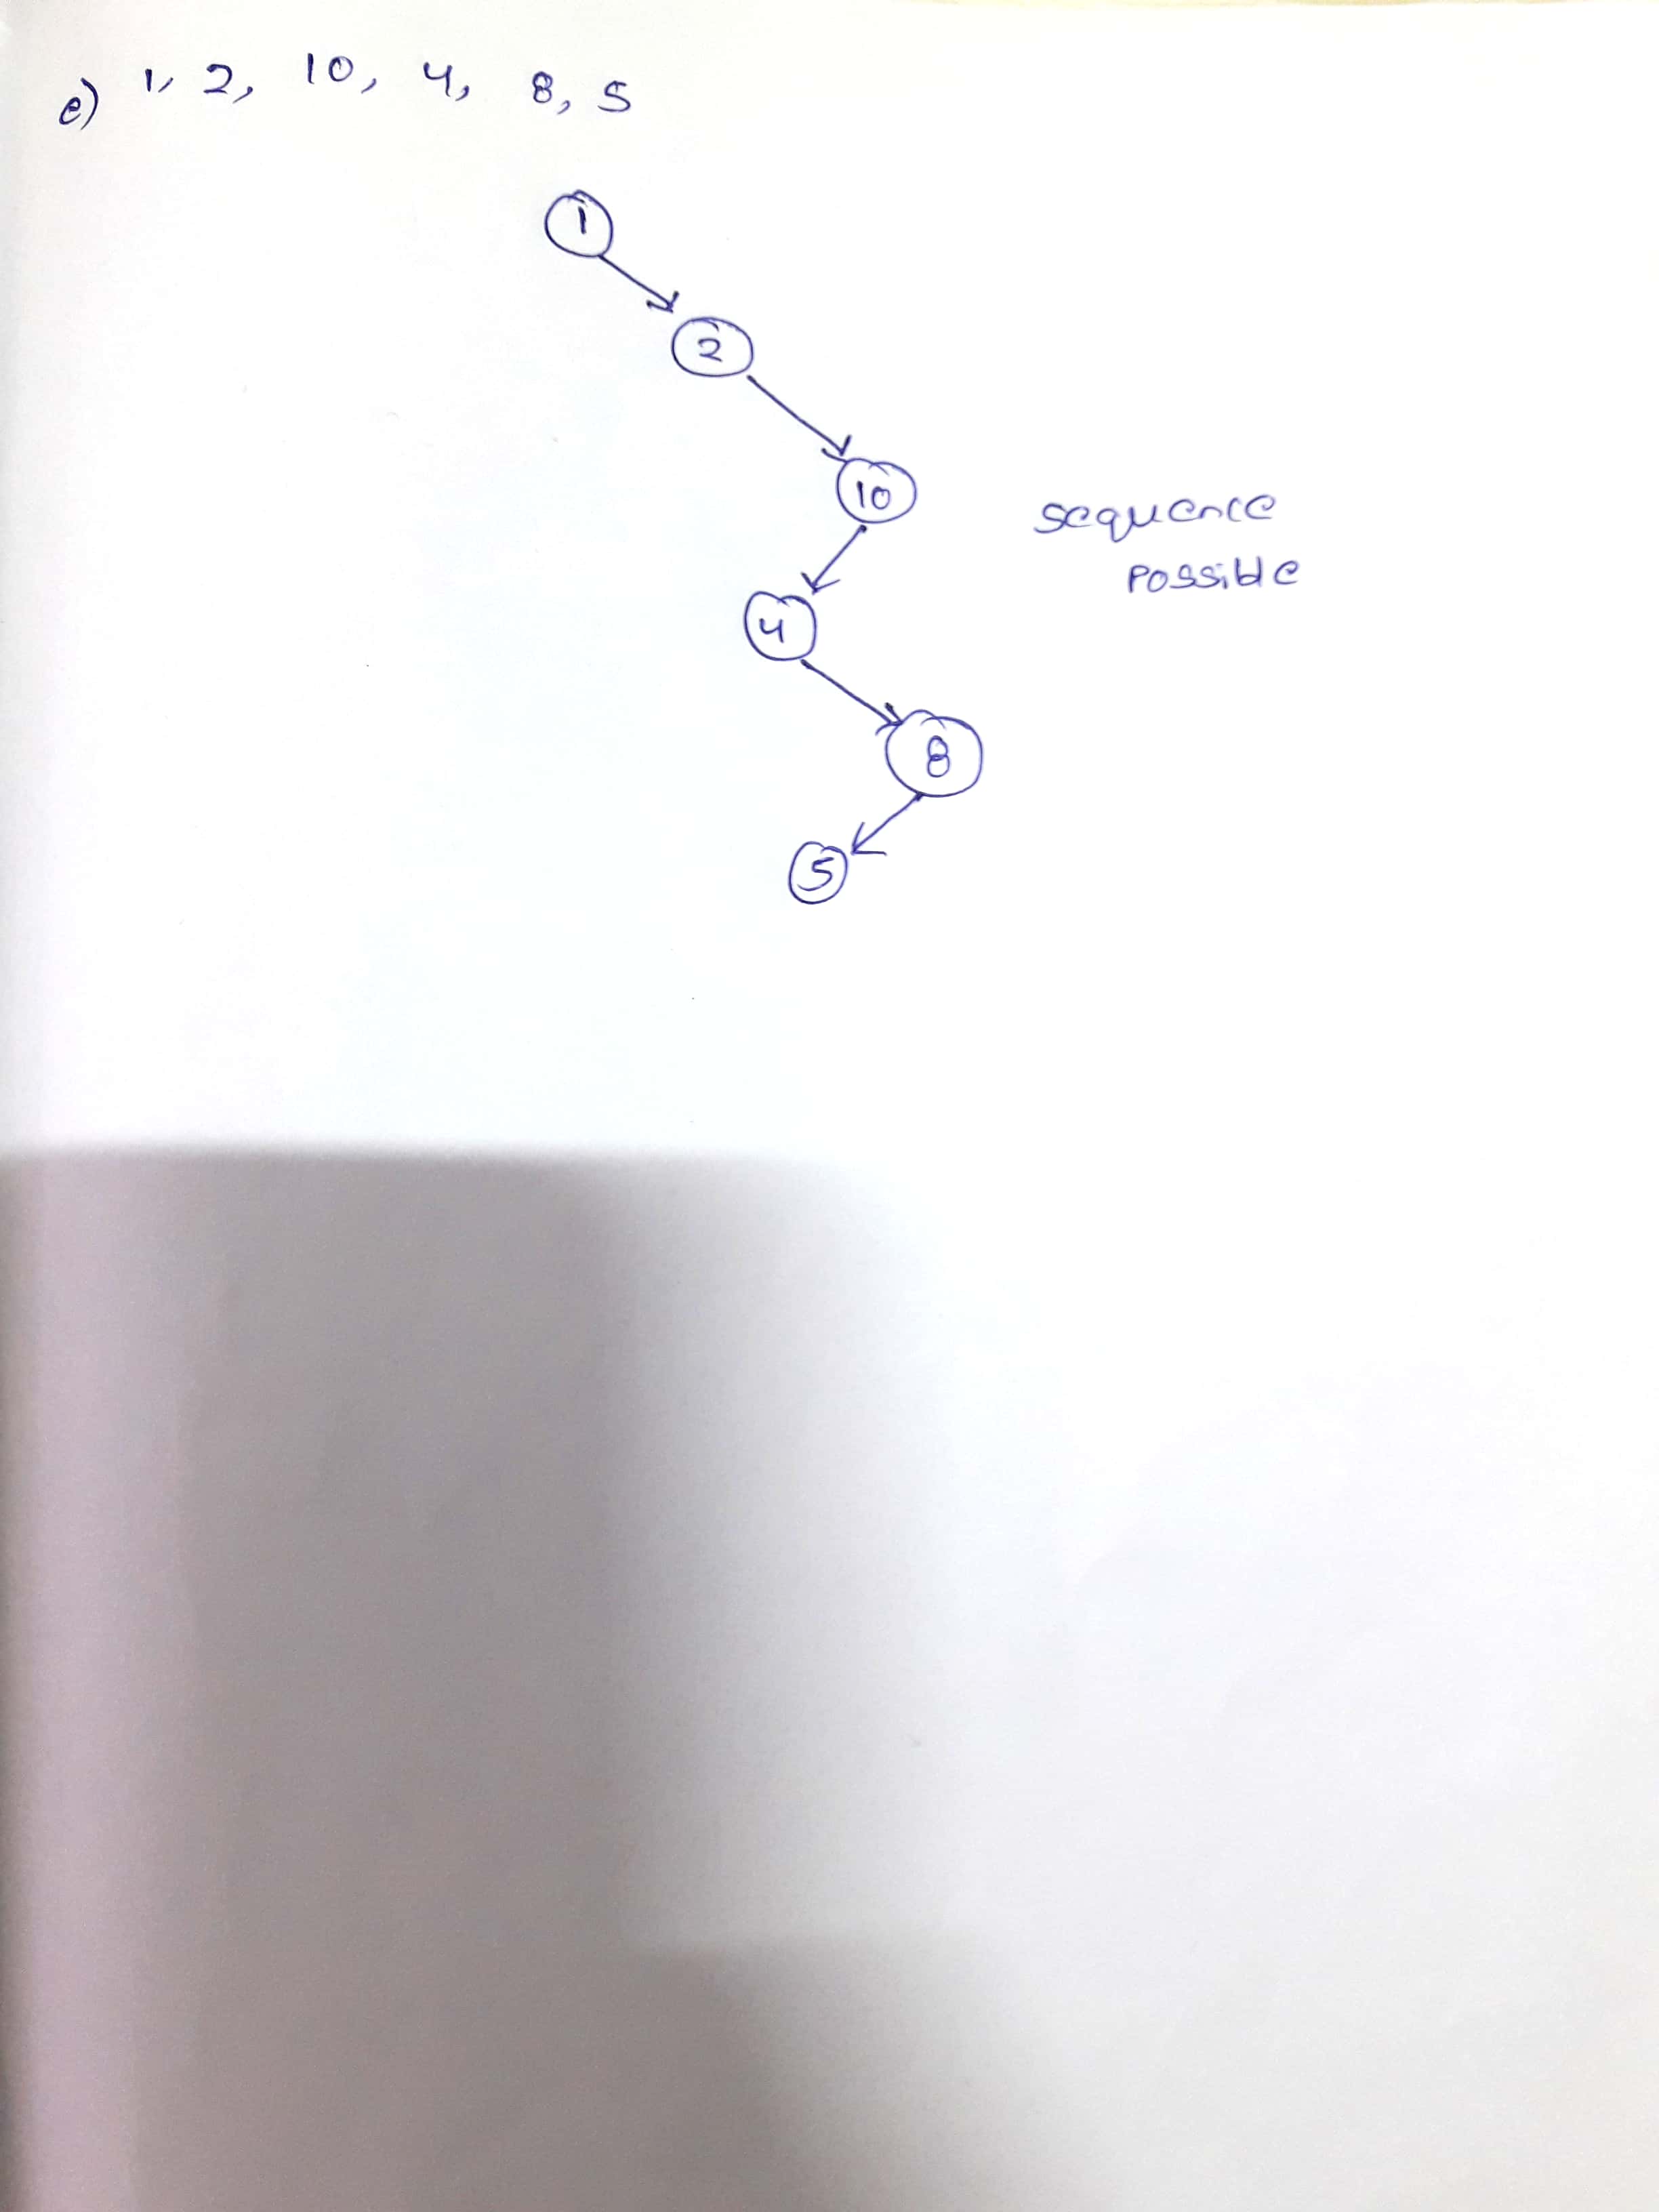 e) 1, 2, 10, 4, 8, 5
1
2
10
sequence
possible
4
8
5